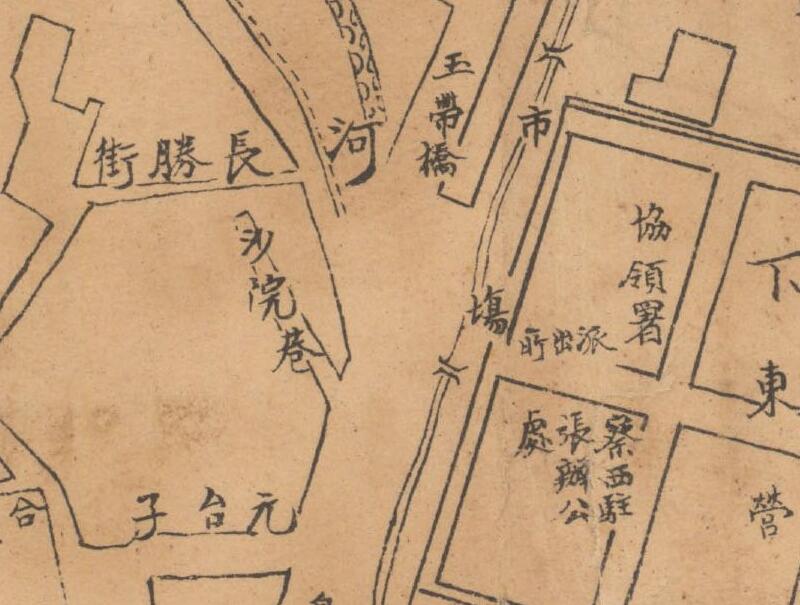 玉帶橋
河
長勝街
沙院巷
元台子
市塲
協領署
派出所
蔡西駐
張辦公
處
下東
營
合